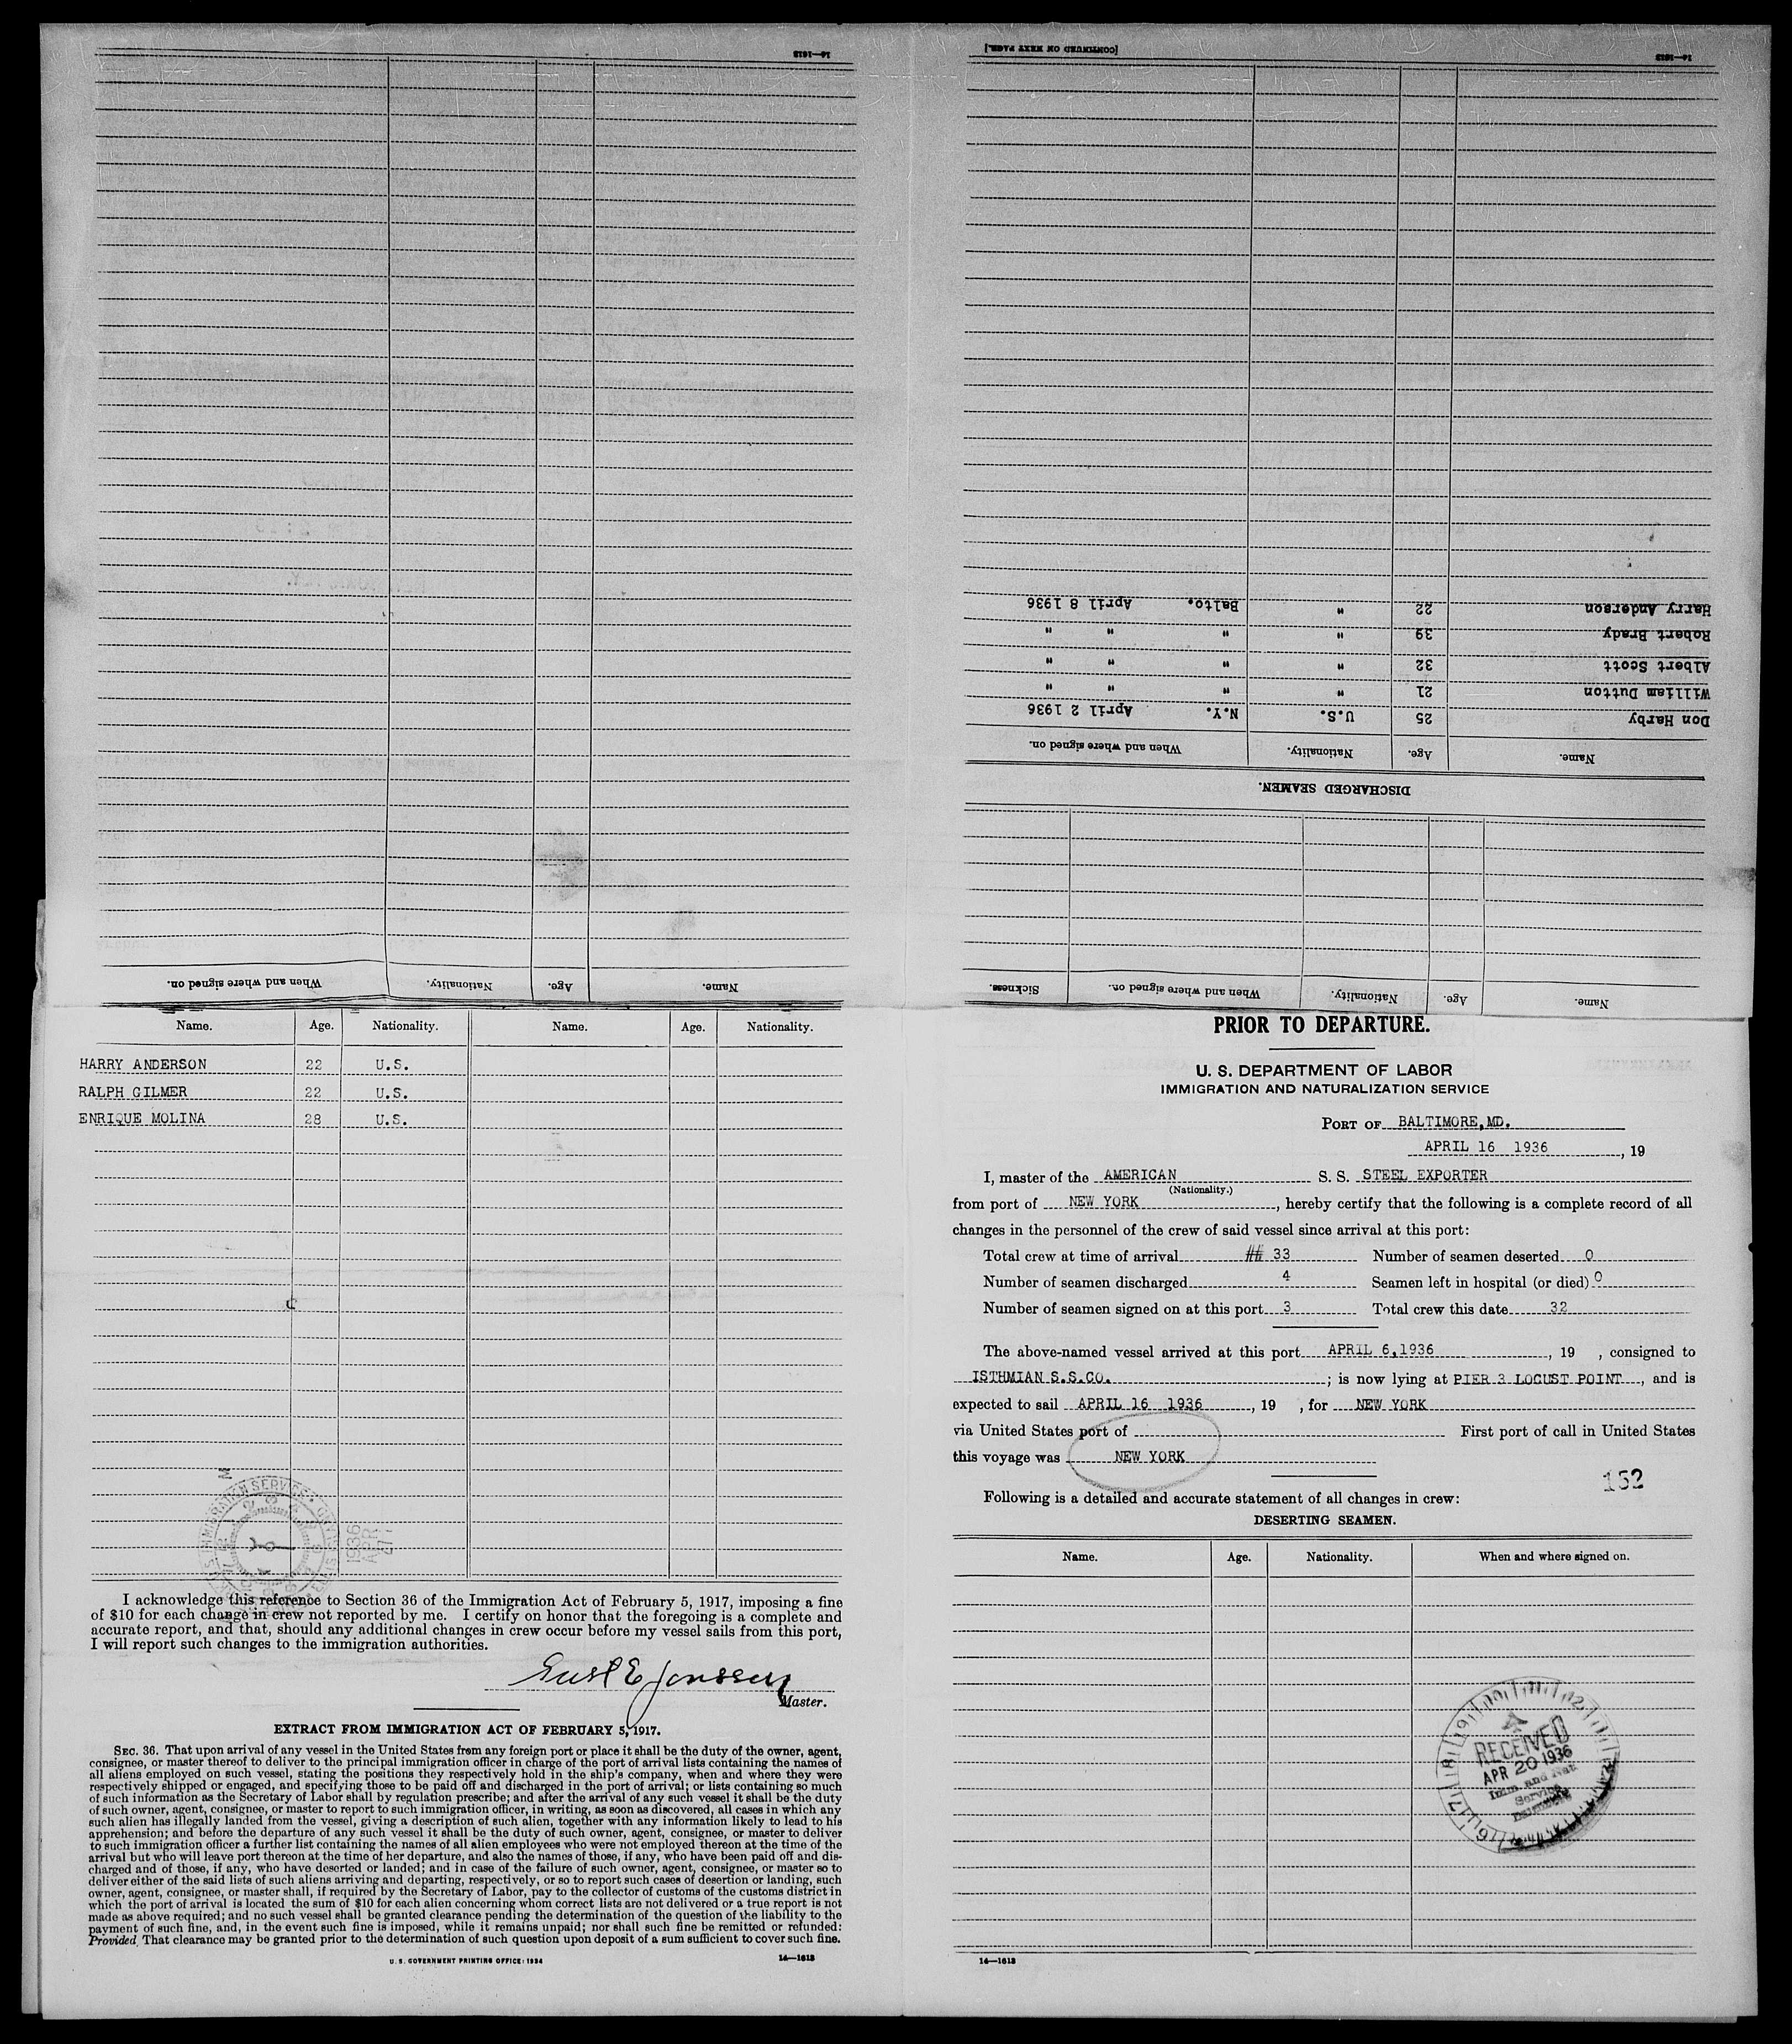 PRIOR TO DEPARTURE.
U. S. DEPARTMENT OF LABOR
IMMIGRATION AND NATURALIZATION SERVICE
PORT OF BALTIMORE,MD.
APRIL 16 1936, 19
I, master of the AMERICAN S. S. STEEL EXPORTER
(Nationality.)
from port of NEW YORK, hereby certify that the following is a complete record of all
changes in the personnel of the crew of said vessel since arrival at this port:
Total crew at time of arrival ## 33 Number of seamen deserted 0
Number of seamen discharged 4 Seamen left in hospital (or died) 0
Number of seamen signed on at this port 3 Total crew this date 32
The above-named vessel arrived at this port APRIL 6,1936, 19 , consigned to
ISTHMIAN S.S.CO. ; is now lying at PIER 3 LOCUST POINT, and is
expected to sail APRIL 16 1936, 19 , for NEW YORK
via United States port of First port of call in United States
this voyage was NEW YORK
152
Following is a detailed and accurate statement of all changes in crew:
DESERTING SEAMEN.
Name. Age. Nationality. When and where signed on.
RECEIVED
APR 20 1936
Imm. and Nat.
Service
14—1613
Name. Age. Nationality. When and where signed on. Sickness.
DISCHARGED SEAMEN.
Name. Age. Nationality. When and where signed on.
Don Harby 25 U.S. N.Y. April 2 1936
William Dutton 21 " " " "
Albert Scott 32 " " " "
Robert Brady 39 " " " "
Harry Anderson 22 " Balto. April 8 1936
14—1613 [CONTINUED ON NEXT PAGE.]
Name. Age. Nationality. When and where signed on.
14—1613
Name. Age. Nationality. Name. Age. Nationality.
HARRY ANDERSON 22 U.S.
RALPH GILMER 22 U.S.
ENRIQUE MOLINA 28 U.S.
1936
APR
I acknowledge this reference to Section 36 of the Immigration Act of February 5, 1917, imposing a fine
of $10 for each change in crew not reported by me. I certify on honor that the foregoing is a complete and
accurate report, and that, should any additional changes in crew occur before my vessel sails from this port,
I will report such changes to the immigration authorities.
Gust E Jonssen
Master.
EXTRACT FROM IMMIGRATION ACT OF FEBRUARY 5, 1917.
SEC. 36. That upon arrival of any vessel in the United States from any foreign port or place it shall be the duty of the owner, agent,
consignee, or master thereof to deliver to the principal immigration officer in charge of the port of arrival lists containing the names of
all aliens employed on such vessel, stating the positions they respectively hold in the ship's company, when and where they were
respectively shipped or engaged, and specifying those to be paid off and discharged in the port of arrival; or lists containing so much
of such information as the Secretary of Labor shall by regulation prescribe; and after the arrival of any such vessel it shall be the duty
of such owner, agent, consignee, or master to report to such immigration officer, in writing, as soon as discovered, all cases in which any
such alien has illegally landed from the vessel, giving a description of such alien, together with any information likely to lead to his
apprehension; and before the departure of any such vessel it shall be the duty of such owner, agent, consignee, or master to deliver
to such immigration officer a further list containing the names of all alien employees who were not employed thereon at the time of the
arrival but who will leave port thereon at the time of her departure, and also the names of those, if any, who have been paid off and dis-
charged and of those, if any, who have deserted or landed; and in case of the failure of such owner, agent, consignee, or master so to
deliver either of the said lists of such aliens arriving and departing, respectively, or so to report such cases of desertion or landing, such
owner, agent, consignee, or master shall, if required by the Secretary of Labor, pay to the collector of customs of the customs district in
which the port of arrival is located the sum of $10 for each alien concerning whom correct lists are not delivered or a true report is not
made as above required; and no such vessel shall be granted clearance pending the determination of the question of the liability to the
payment of such fine, and, in the event such fine is imposed, while it remains unpaid; nor shall such fine be remitted or refunded:
Provided, That clearance may be granted prior to the determination of such question upon deposit of a sum sufficient to cover such fine.
U. S. GOVERNMENT PRINTING OFFICE: 1934 14—1613